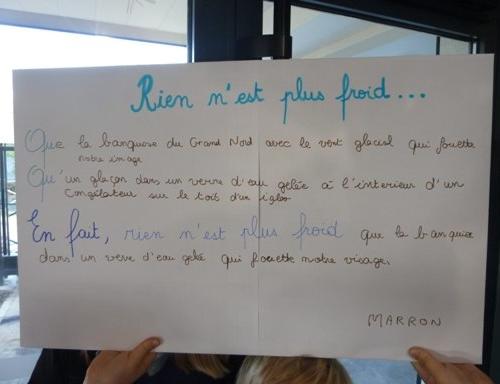 Rien n'est plus froid...
Que la banquise du Grand Nord avec le vent glacial qui fouette
notre image
Qu'un glaçon dans un verre d'eau gelée à l'interieur d'un
Congélateur sur le toit d'un igloo
En fait, rien n'est plus froid que la banquise
dans un verre d'eau gelée qui fouette notre visage.
MARRON